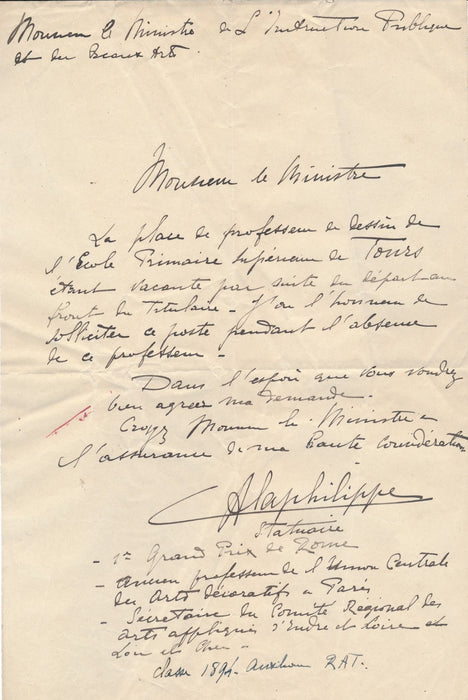 Monsieur le Ministre de L'Instruction Publique
et des Beaux Arts.
Monsieur le Ministre
La place de professeur de dessin de
l'Ecole Primaire Supérieure de Tours
étant vacante par suite du départ au
front du Titulaire - J'ai l'honneur de
solliciter ce poste pendant l'absence
de ce professeur -
Dans l'espoir que vous voudrez
bien agréer ma demande.
Croyez Monsieur le Ministre a
l'assurance de ma haute considération
Alaphilippe
Statuaire
- 1er Grand Prix de Rome
- Ancien professeur de l'Union Centrale
des Arts décoratifs a Paris
- Sécrétaire du Comité Régional des
arts appliqués d'Indre et Loire et
Loir et Cher -
classe 1894. Auxiliaire RAT.